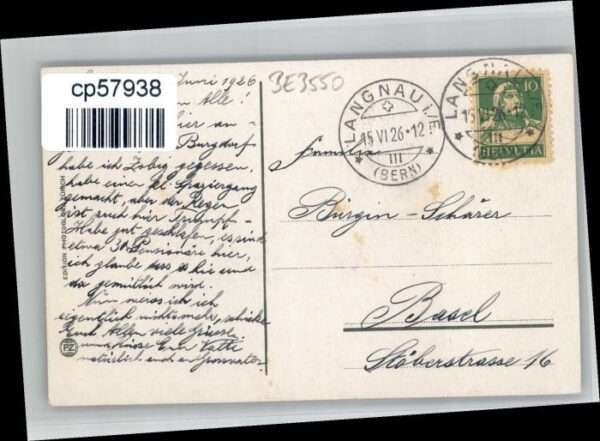 cp57938
Juni 1926
BE3550
Alle!
hier an-
Burgdorf
habe ich Zobig gegessen,
habe einen kl. Spaziergang
gemacht, aber der Regen
ist auch hier Trumpf.
Habe gut geschlafen, es sind
etwa 30 Pensionäre hier,
ich glaube dass es hie und
da gemütlich wird.
Nun weiss ich
eigentlich nichts mehr, schicke
Euch Allen viele Grüsse
Euer Vatti
natürlich auch an Grossvater
EDITION PHOTOGLOB ZÜRICH
PZ
LANGNAU I/E
15 VI 26 - 12
III
(BERN)
LANGNAU
III
10
HELVETIA
Familie
Bürgin-Schärer
Basel
Stöberstrasse 16